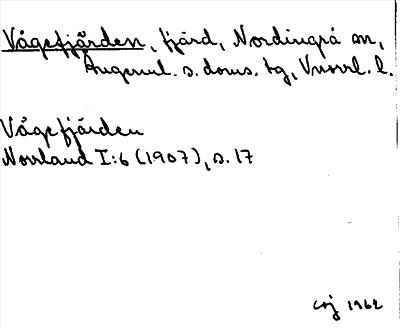 Vågefjärden, fjärd, Nordingrå sn,
Ångerml. s. doms. tg, Vnorrl. l.
Vågefjärden
Norrland I:6 (1907), s. 17
1962